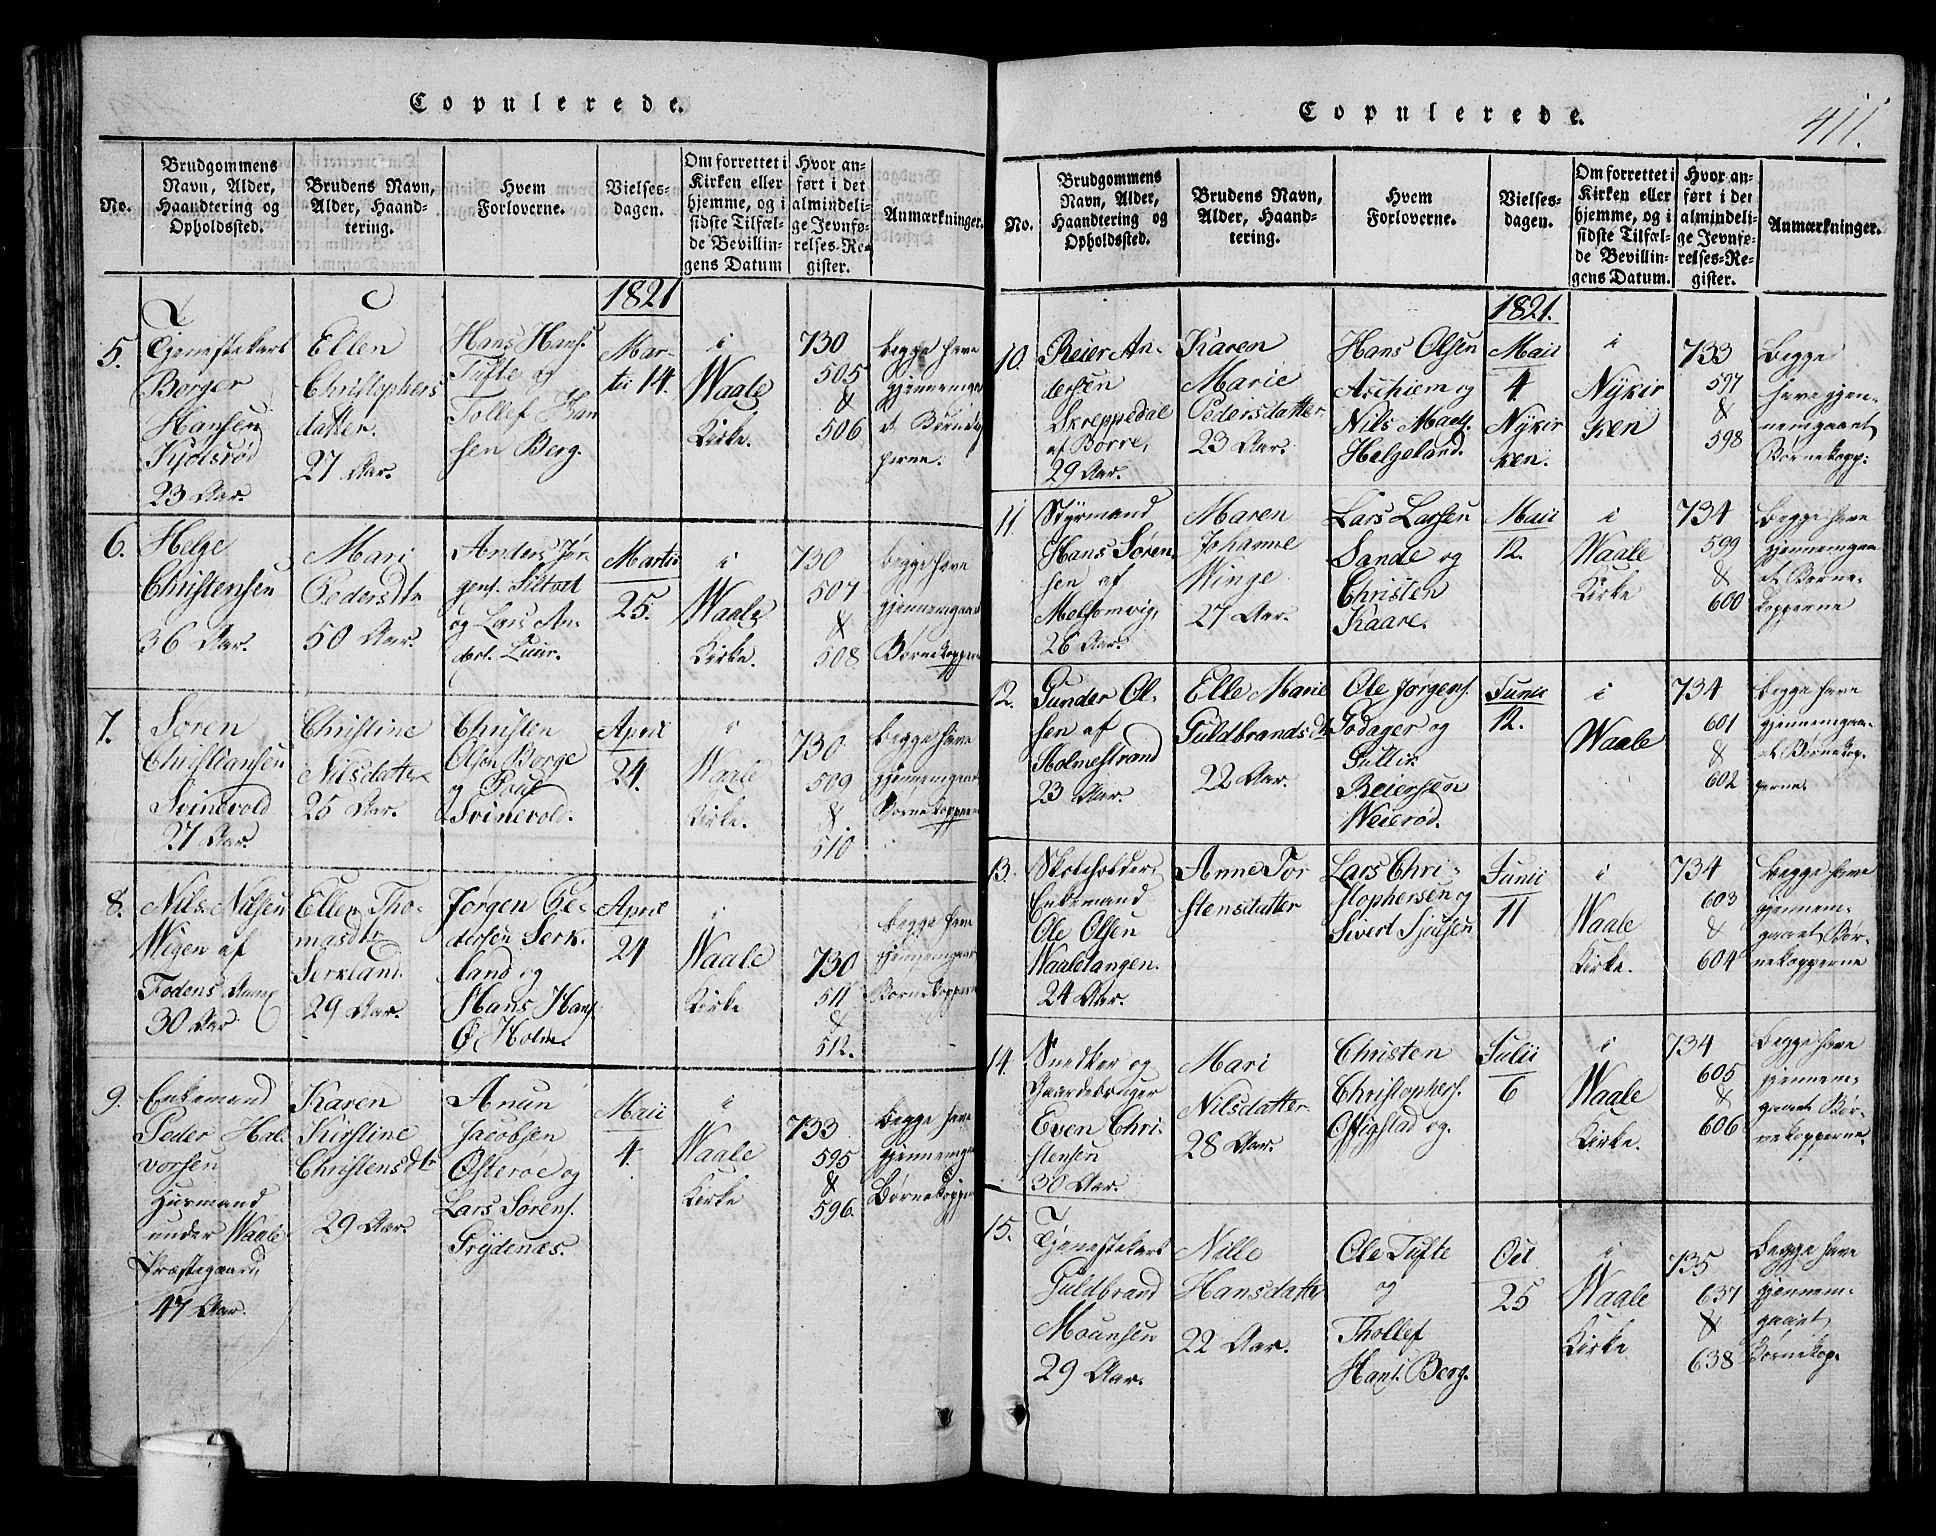 Copulerede.
No.
Brudgommens
Navn, Alder,
Haandtering og
Opholdssted.
Brudens Navn,
Alder, Haand-
tering.
Hvem
Forloverne.
Vielses-
dagen.
Om forrettet i
Kirken eller
hjemme, og i
sidste Tilfæl-
de Bevillin-
gens Datum
Hvor an-
ført i det
almindeli-
ge Jevnfø-
relses-Re-
gister.
Anmærkninger.
1821
5.
Tjenestekarl
Borger
Hansen
23 Aar.
Ellen
Christophers
datter.
27 Aar.
Hans Hans.
Tufte og
Tollef Han
sen Berg.
Mar-
tii 14.
i
Waale
Kirke.
730
505
&
506
begge have
gjennemgaa
et Børneko
perne.
6.
Helge
Christensen
36 Aar.
Mari
Pedersdtr
50 Aar.
Anders Jør
gens. Siltvet
og Lars An-
ders. Luur.
Martii
25.
i
Waale
Kirke.
730
507
&
508
begge have
gjennemgaaet
Børnekopperne
7.
Søren
Christiansen
Svinevold
27 Aar.
Christine
Nilsdatter
25 Aar.
Christen
Olsen Borge
og Poul
Svinevold.
April
24.
i
Waale
Kirke.
730
509
&
510
begge have
gjennemgaaet
Børnekopperne
8.
Nils Nilsen
Wigen af
Fodens Annex
30 Aar
Ellen Tho-
masdtr
Serkland
29 Aar.
Jørgen Pe-
dersen Serk-
land og
Hans Hans
Ø. Holm.
April
24
i
Waale
Kirke
730
511
&
512.
begge have
gjennemgaaet
Børnekopperne
9.
Enkemand
Peder Hal-
vorsen
Husmand
under Waale
Præstegaard,
47 Aar.
Karen
Kirstine
Christensdtr
29 Aar.
Anun
Jacobsen
Østerøe og
Lars Sørens.
Frydenæs.
Maii
4.
i
Waale
Kirke
733
595
&
596.
begge have
gjennemgaaet
Børnekopperne
Copulerede.
411.
No.
Brudgommens
Navn, Alder,
Haandtering og
Opholdssted.
Brudens Navn,
Alder, Haand-
tering.
Hvem
Forloverne.
Vielses-
dagen.
Om forrettet i
Kirken eller
hjemme, og i
sidste Tilfæl-
de Bevillin-
gens Datum.
Hvor an-
ført i det
almindeli-
ge Jevnfø-
relses-Re-
gister.
Anmærkninger.
1821.
10.
Reier An-
dersen
Skreppedal
af Borre,
29 Aar.
Karen
Marie
Pedersdatter
23 Aar.
Hans Olsen
Aschiem og
Nils Mads.
Helgeland.
Maii
4.
Nykir
ken.
i
Nykir
ken
733
597
&
598
begge
have gjen-
nemgaaet
Børnekopp:
11.
Styrmand
Hans Søren-
sen af
Melsomvig,
26 Aar.
Maren
Johanne
Winge
27 Aar.
Lars Larsen
Sande og
Christen
Kaare.
Maii
12.
i
Waale
Kirke
734
599
&
600
begge have
gjennemgaa
et Børne-
kopperne
12.
Gunder Ol-
sen af
Holmestrand
23 Aar.
Elle Marie
Guldbrandsdtr
22 Aar.
Ole Jørgens.
Jodager og
Gullic
Reiersen
Weierød.
Junii
12.
i
Waale
734
601
&
602
begge have
gjennemgaa-
et Børnekop-
perne
13.
Skoleholder,
Enkemand
Ole Olsen
Waaletangen.
24 Aar.
Anne Tor
stensdatter
Lars Chri-
stophersen og
Sivert Sjulsen
Junii
11
i
Waale
Kirke.
734
603
&
604
begge have
gjennem-
gaaet Bør-
nekopperne
14.
Snedker og
Gaardebruger
Even Chri-
stensen
30 Aar.
Mari
Nilsdatter
28 Aar.
Christen
Christophers.
Offigstad og.
Julii
6
i
Waale
Kirke.
734
605
&
606
begge have
gjennem-
gaaet Bør-
nekopperne.
15.
Tjenestekarl
Guldbrand
Mounsen
29 Aar.
Nille
Hansdatter
22 Aar.
Ole Tufte
og
Thollef
Hans. Berg.
Oct
25
i
Waale
Kirke
735
637
&
638
begge have
gjennem-
gaaet
Børnekop.